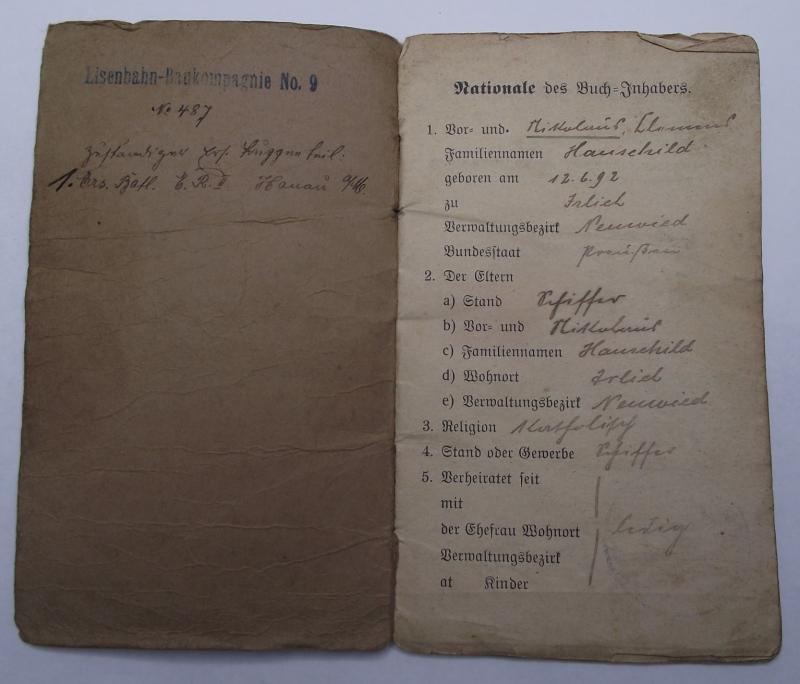 Eisenbahn-Baukompagnie No. 9
No 487
zuständiger Ers. Truppenteil.
1. Ers. Batl. E. R. Hanau a/M.
Nationale des Buch-Inhabers.
1. Vor- und. Nikolaus, Clemens
Familiennamen Hauschild
geboren am 12.6.92
zu Irlich
Verwaltungsbezirk Neuwied
Bundesstaat Preußen
2. Der Eltern
a) Stand Schiffer
b) Vor- und Nikolaus
c) Familiennamen Hauschild
d) Wohnort Irlich
e) Verwaltungsbezirk Neuwied
3. Religion Katholisch
4. Stand oder Gewerbe Schiffer
5. Verheiratet seit
mit
der Ehefrau Wohnort ledig
Verwaltungsbezirk
at Kinder